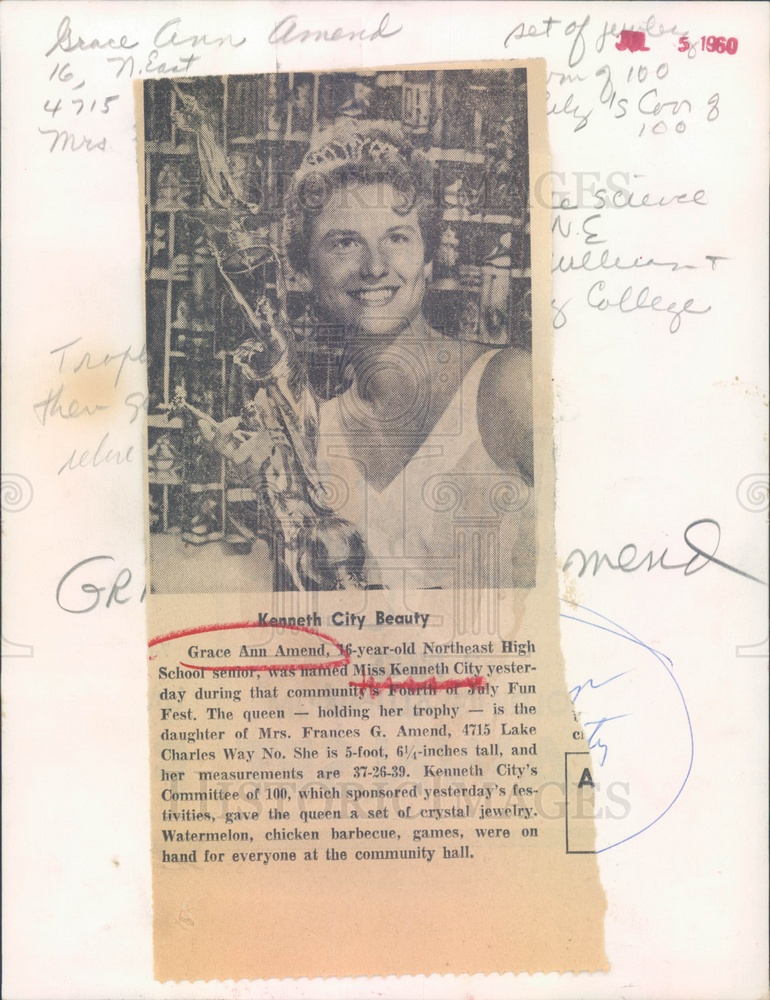 Grace Ann Amend
set of jewelry
JUL 5 1960
16, N. East
of 100
4715
's Com of
100
Mrs
Science
N.E
College
then
HISTORIC IMAGES
mend
Kenneth City Beauty
Grace Ann Amend, 16-year-old Northeast High
School senior, was named Miss Kenneth City yester-
day during that community's Fourth of July Fun
Fest. The queen — holding her trophy — is the
daughter of Mrs. Frances G. Amend, 4715 Lake
Charles Way No. She is 5-foot, 6¼-inches tall, and
her measurements are 37-26-39. Kenneth City's
Committee of 100, which sponsored yesterday's fes-
tivities, gave the queen a set of crystal jewelry.
Watermelon, chicken barbecue, games, were on
hand for everyone at the community hall.
A
HISTORIC IMAGES